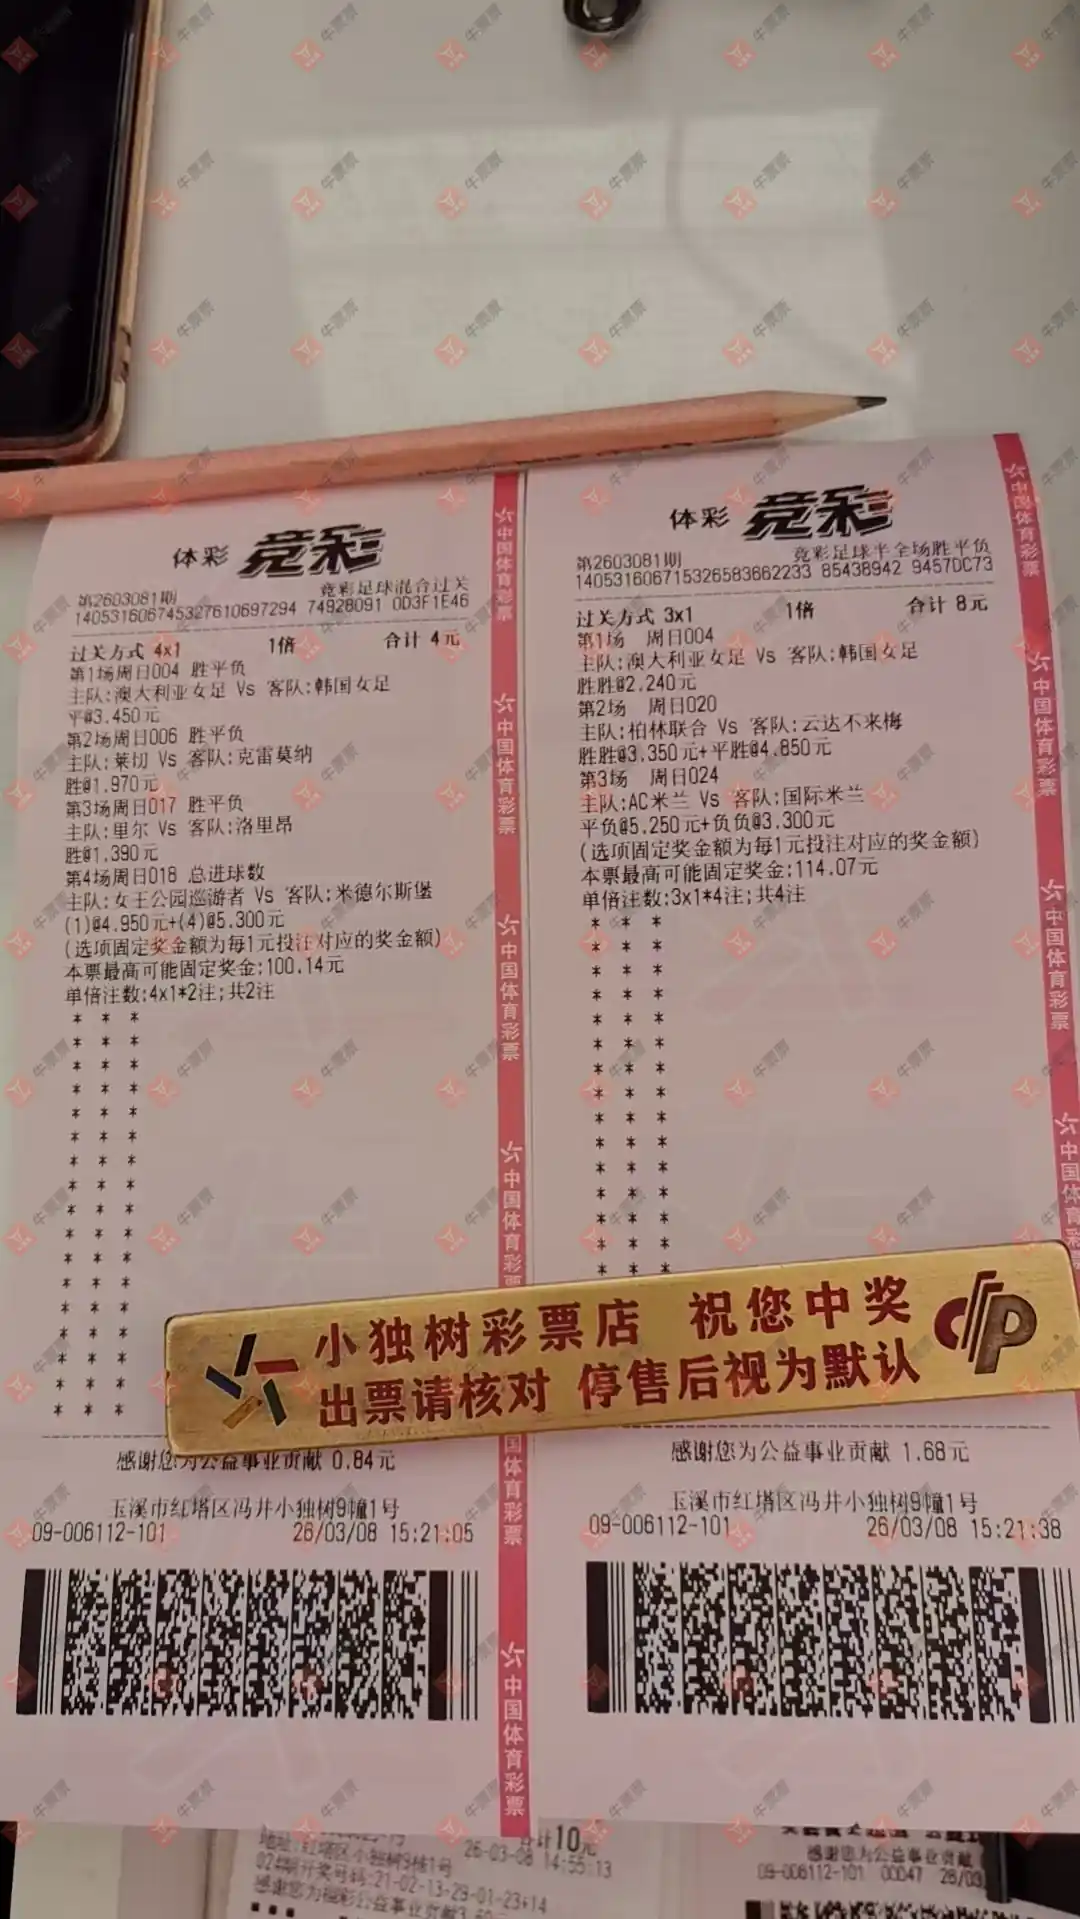 体彩 竞彩
第2603081期 竞彩足球混合过关
140531606745327610697294 74928091 0D3F1E46
过关方式 4x1 1倍 合计 4元
第1场周日004 胜平负
主队:澳大利亚女足 Vs 客队:韩国女足
平@3.450元
第2场周日006 胜平负
主队:莱切 Vs 客队:克雷莫纳
胜@1.970元
第3场周日017 胜平负
主队:里尔 Vs 客队:洛里昂
胜@1.390元
第4场周日018 总进球数
主队:女王公园巡游者 Vs 客队:米德尔斯堡
(1)@4.950元+(4)@5.300元
(选项固定奖金额为每1元投注对应的奖金额)
本票最高可能固定奖金:100.14元
单倍注数:4x1*2注;共2注
感谢您为公益事业贡献 0.84元
玉溪市红塔区冯井小独树9幢1号
09-006112-101 26/03/08 15:21:05
中国体育彩票
体彩 竞彩
第2603081期 竞彩足球半全场胜平负
140531606715326583662233 85438942 9457DC73
过关方式 3x1 1倍 合计 8元
第1场 周日004
主队:澳大利亚女足 Vs 客队:韩国女足
胜胜@2.240元
第2场 周日020
主队:柏林联合 Vs 客队:云达不来梅
胜胜@3.350元+平胜@4.850元
第3场 周日024
主队:AC米兰 Vs 客队:国际米兰
平负@5.250元+负负@3.300元
(选项固定奖金额为每1元投注对应的奖金额)
本票最高可能固定奖金:114.07元
单倍注数:3x1*4注;共4注
感谢您为公益事业贡献 1.68元
玉溪市红塔区冯井小独树9幢1号
09-006112-101 26/03/08 15:21:38
中国体育彩票
小独树彩票店 祝您中奖
出票请核对 停售后视为默认
合计10元
地址:红塔区小独树9栋1号 26-03-08 14:55:13
024期开奖号码:21-02-13-29-01-23+14
感谢您为福彩公益事业贡献
感谢您为公益事业贡献
09-006112-101 00047 26/03
牛票票